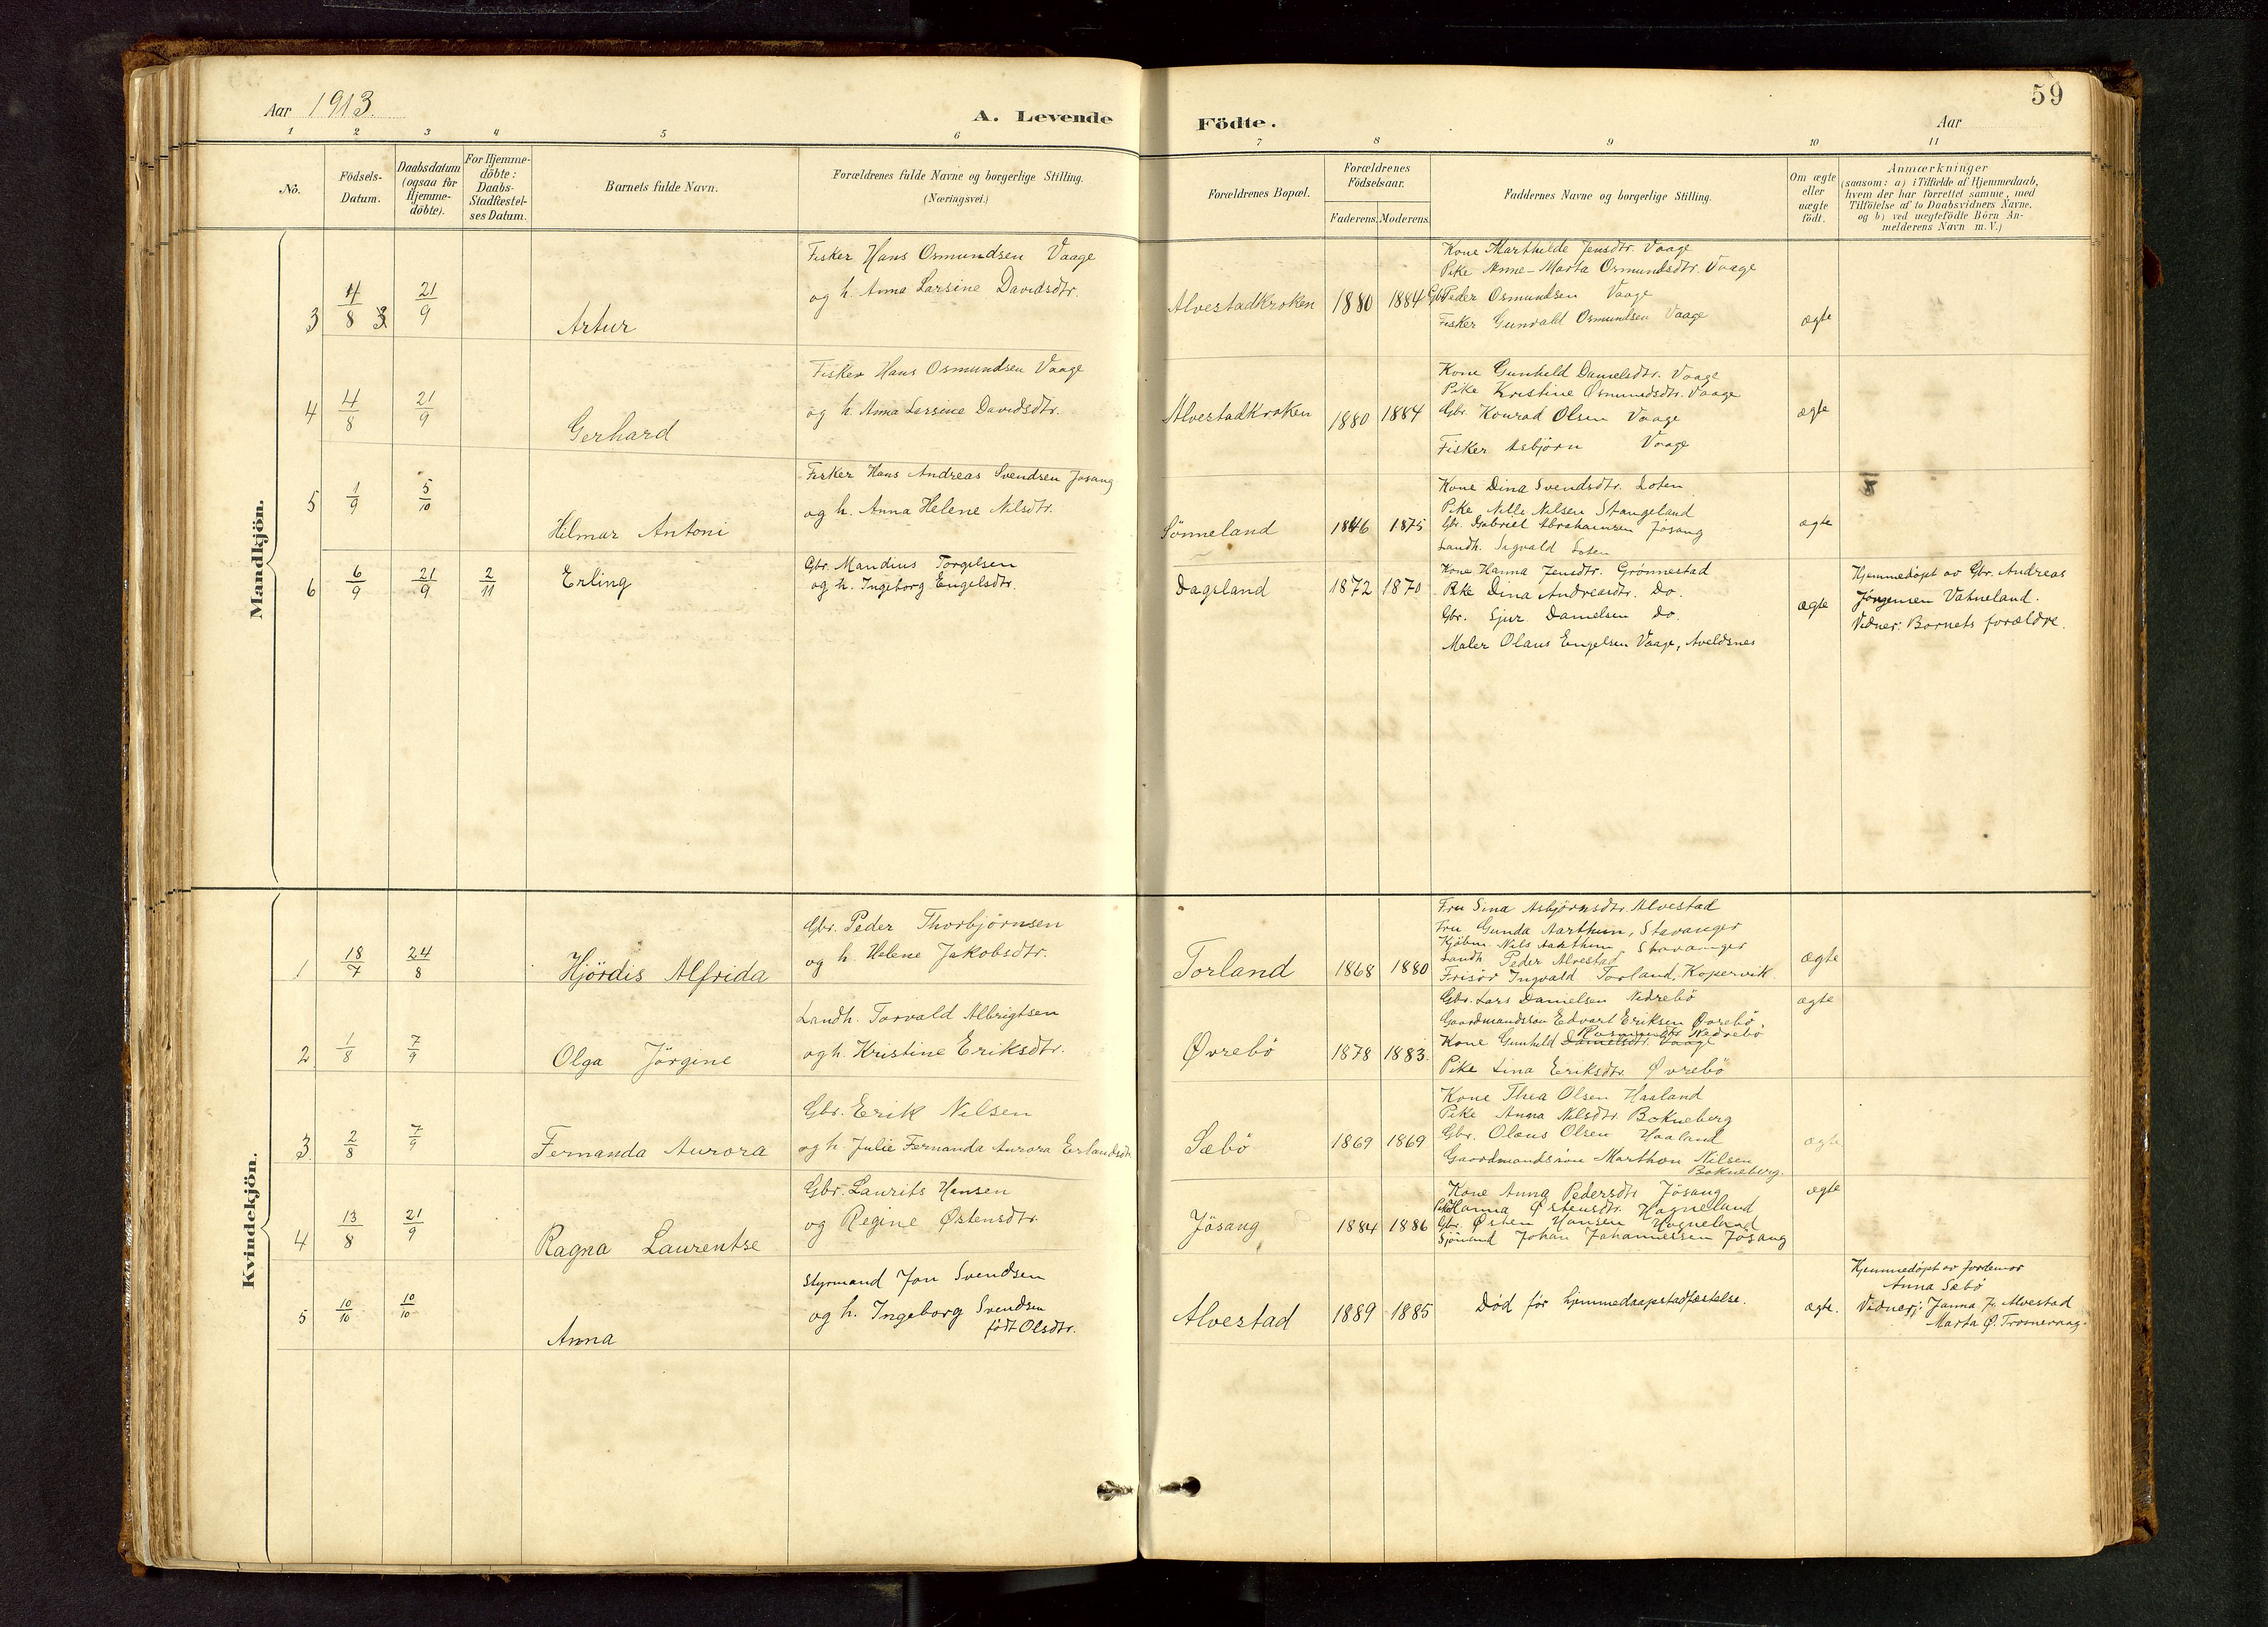 Aar 1913.
A. Levende Födte.
Aar
59
1 2 3 4 5 6 7 8 9 10 11
No.
Födsels-
Datum.
Daabsdatum
(ogsaa for
Hjemme-
döbte).
For Hjemme-
döbte:
Daabs-
Stadfœstel-
ses Datum.
Barnets fulde Navn.
Forœldrenes fulde Navne og borgerlige Stilling.
(Nœringsvei.)
Forœldrenes Bopœl.
Forœldrenes
Födselsaar.
Faderens. Moderens.
Faddernes Navne og borgerlige Stilling.
Om œgte
eller
uœgte
födt.
Anmœrkninger
(saasom: a) i Tilfœlde af Hjemmedaab,
hvem der har forrettet samme, med
Tilföielse af to Daabsvidners Navne,
og b) ved uœgtefödte Börn An-
melderens Navn m. V.)
Mandkjön.
3 4/8 21/9 Artur
Fisker Hans Osmundsen Vaage
og h. Anna Larsine Davidsdtr.
Alvestadkroken 1880 1884
Kone Marthilde Jensdtr. Vaage
Pike Anne-Marta Osmundsdtr. Vaage
Gbr. Peder Osmundsen Vaage
Fisker Gunvald Osmundsen Vaage
ægte
4 4/8 21/9 Gerhard
Fisker Hans Osmundsen Vaage
og h. Anna Larsine Davidsdtr.
Alvestadkroken 1880 1884
Kone Gunhild Danielsdtr. Vaage
Pike Kristine Osmundsdtr. Vaage
Gbr. Konrad Olsen Vaage
Fisker Asbjørn Vaage
ægte
5 1/9 5/10 Hilmar Antoni
Fisker Hans Andreas Svendsen Jøsang
og h. Anna Helene Nilsdtr.
Sönneland 1846 1875
Kone Dina Svendsdtr. Loten
Pike Nille Nilsen Stangeland
Gbr. Gabriel Abrahamsen Jösang
Landh. Sigvald Loten
ægte
6 6/9 21/9 2/11 Erling
Gbr. Mandius Torgilsen
og h. Ingeborg Engelsdtr.
Dagsland 1872 1870
Kone Hanna Jensdtr. Grönnestad
Pike Dina Andreasdtr. Do.
Gbr. Sjur Danielsen Do.
Maler Olaus Engelsen Vaage, Aveldsnes
ægte
Hjemmedøpt av Gbr. Andreas
Jørgensen Vatneland.
Vidner: Barnets forældre.
Kvindekjön.
1 18/7 24/8 Hjördis Alfrida
Gbr. Peder Thorbjörnsen
og h. Helene Jakobsdtr.
Torland 1868 1880
Fru Sina Asbjörnsdtr. Alvestad
Fru Gunda Aarthun, Stavanger
Kjöbm. Nils Aarthun, Stavanger
Landh. Peder Alvestad
Frisör Ingvald Torland, Kopervik.
ægte
2 1/8 7/9 Olga Jörgine
Landh. Torvald Albrigtsen
og h. Kristine Eriksdtr.
Øvrebö 1878 1883.
Gbr. Lars Danielsen Nedrebö
Gaardmandssön Edvart Eriksen Øvrebö
Rasmusdtr. Nedrebö
Kone Gunhild Danielsdtr. Vaage
Pike Lina Eriksdtr. Øvrebö
ægte
3 2/8 7/9 Fernanda Aurora
Gbr. Erik Nilsen
og h. Julie Fernanda Aurora Erlandsdtr.
Sæbö 1869 1869
Kone Thea Olsen Haaland
Pike Anna Nilsdtr. Bokneberg
Gbr. Olaus Olsen Haaland
Gaardmandssön Marthon Nilsen
Bokneberg.
ægte
4 13/8 21/9 Ragna Laurentse
Gbr. Laurits Hansen
og Regine Østensdtr.
Jösang 1884 1886
Kone Anna Pedersdtr. Jösang
Pike Hanna Østensdtr. Hogneland
Gbr. Østen Hansen Hogneland
Sjömand Johan Johannessen Jösang
ægte
5 10/10 10/10 Anna
Styrmand Jon Svendsen
og h. Ingeborg Svendsen
født Olsdtr.
Alvestad 1889 1885
Död för hjemmedaapstadfæstelse.
ægte.
Hjemmedöpt av Jordemor
Anna Sæbö
Vidner: Janna Alvestad
Marta Ø.